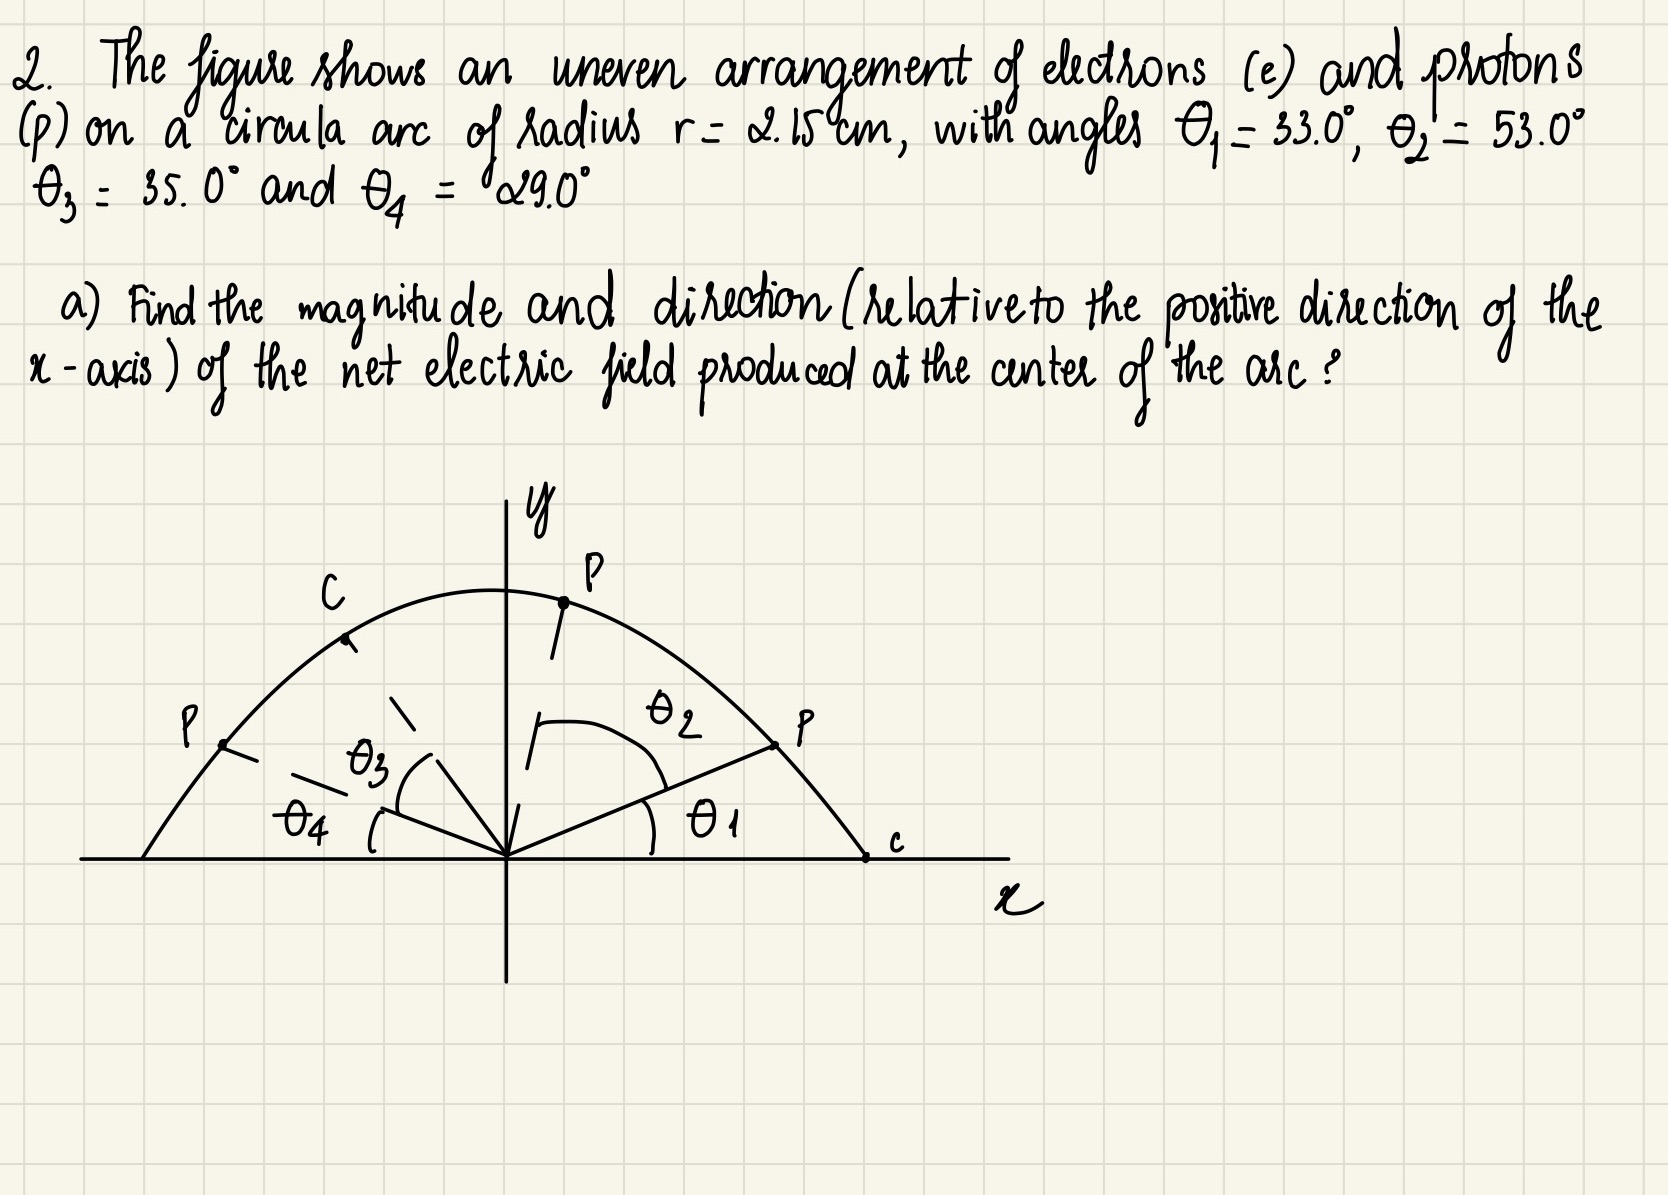 2. The figure shows an uneven arrangement of electrons (e) and protons
(p) on a circula arc of radius r = 2.15 cm, with angles θ1 = 33.0°, θ2 = 53.0°
θ3 = 35.0° and θ4 = 29.0°
a) Find the magnitude and direction (relative to the positive direction of the
x-axis) of the net electric field produced at the center of the arc?
y
P
C
P
θ2
P
θ3
θ4
θ1
c
x